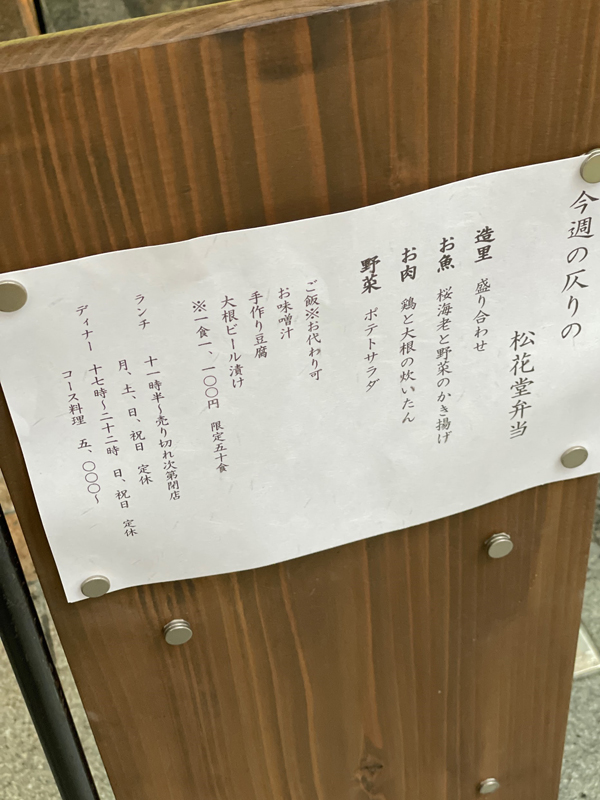 今週の仄りの
松花堂弁当
造里 盛り合わせ
お魚 桜海老と野菜のかき揚げ
お肉 鶏と大根の炊いたん
野菜 ポテトサラダ
ご飯※お代わり可
お味噌汁
手作り豆腐
大根ビール漬け
※一食一、一〇〇円 限定五十食
ランチ 十一時半～売り切れ次第閉店
月、土、日、祝日 定休
ディナー 十七時～二十二時 日、祝日 定休
コース料理 五、〇〇〇～